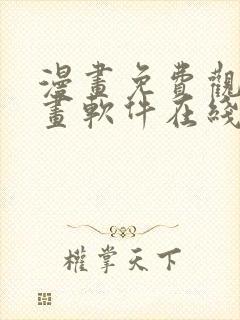 漫畫免費觀
畫軟件在綫
權掌天下